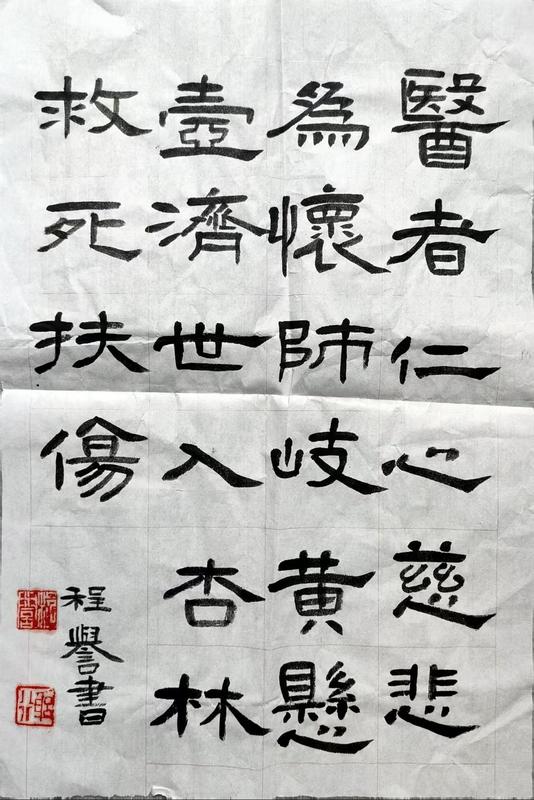 醫者仁心慈悲
為懷師岐黄懸
壺濟世入杏林
救死扶傷
程譽書